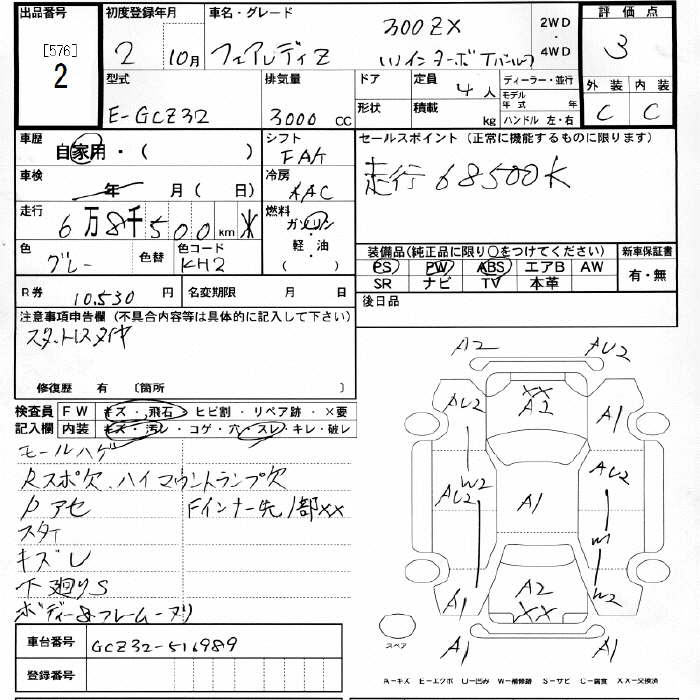 出品番号 初度登録年月 車名・グレード 評価点
[576] 2 2 10月 フェアレディZ 300ZX 2WD・4WD 3
ツインターボTバールーフ
型式 排気量 ドア 定員 4人 ディーラー・並行 外装 内装
E-GCZ32 3000CC 形状 積載 kg モデル年式 年 C C
ハンドル 左・右
車歴 シフト セールスポイント(正常に機能するものに限ります)
自家用・( ) FAT 走行68500K
車検 冷房
年 月(日) AAC
走行 燃料
6万8千500km ガソリン
軽・油
( )
色 色替 色コード 装備品(純正品に限り○をつけてください) 新車保証書
グレー KH2 PS PW ABS エアB AW 有・無
SR ナビ TV 本革
R券 10.530円 名変期限 月 日 後日品
注意事項申告欄(不具合内容等は具体的に記入して下さい)
スタットレスタイヤ
修復歴 有 〔箇所 〕
検査員 FW キズ・飛石・ヒビ割・リペア跡・×要
記入欄 内装 キズ・汚レ・コゲ・穴・スレ・キレ・破レ
モールハゲ
Rスポ欠、ハイマウントランプ欠
Pアセ Fインナー先1部XX
スタイ
キズレ
下廻りS
ボディー&フレームヌリ
車台番号 GCZ32-516989
登録番号
A2 AU2
XX
A2
AU2 A1
W2
AU2 A1 AU2
W
A1 A2 W2
XX
A1 A1
スペア
A-キズ E-エクボ U-凹み W-補修跡 S-サビ C-腐食 XX-交換済